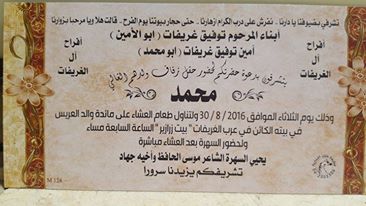 تشرفي بضيوفنا يا دارنا .. نفرش على درب الكرام زهارنا .. حتى حجار بيوتنا يوم الفرح .. قالت هلا ويا مرحبا بزوارنا
أفراح
آل
الغريفات
أبناء المرحوم توفيق غريفات (أبو الأمين)
أمين توفيق غريفات (أبو محمد)
أفراح
آل
الغريفات
يتشرفون بدعوة حضرتكم لحضور حفل زفاف ولدهم الغالي
محمد
وذلك يوم الثلاثاء الموافق 30/8/2016 ولتناول طعام العشاء على مائدة والد العريس
في بيته الكائن في عرب الغريفات "بيت زرازير" الساعة السابعة مساء
ولحضور السهرة بعد العشاء مباشرة
يحيي السهرة الشاعر موسى الحافظ وأخيه جهاد
تشريفكم يزيدنا سرورا
M 128